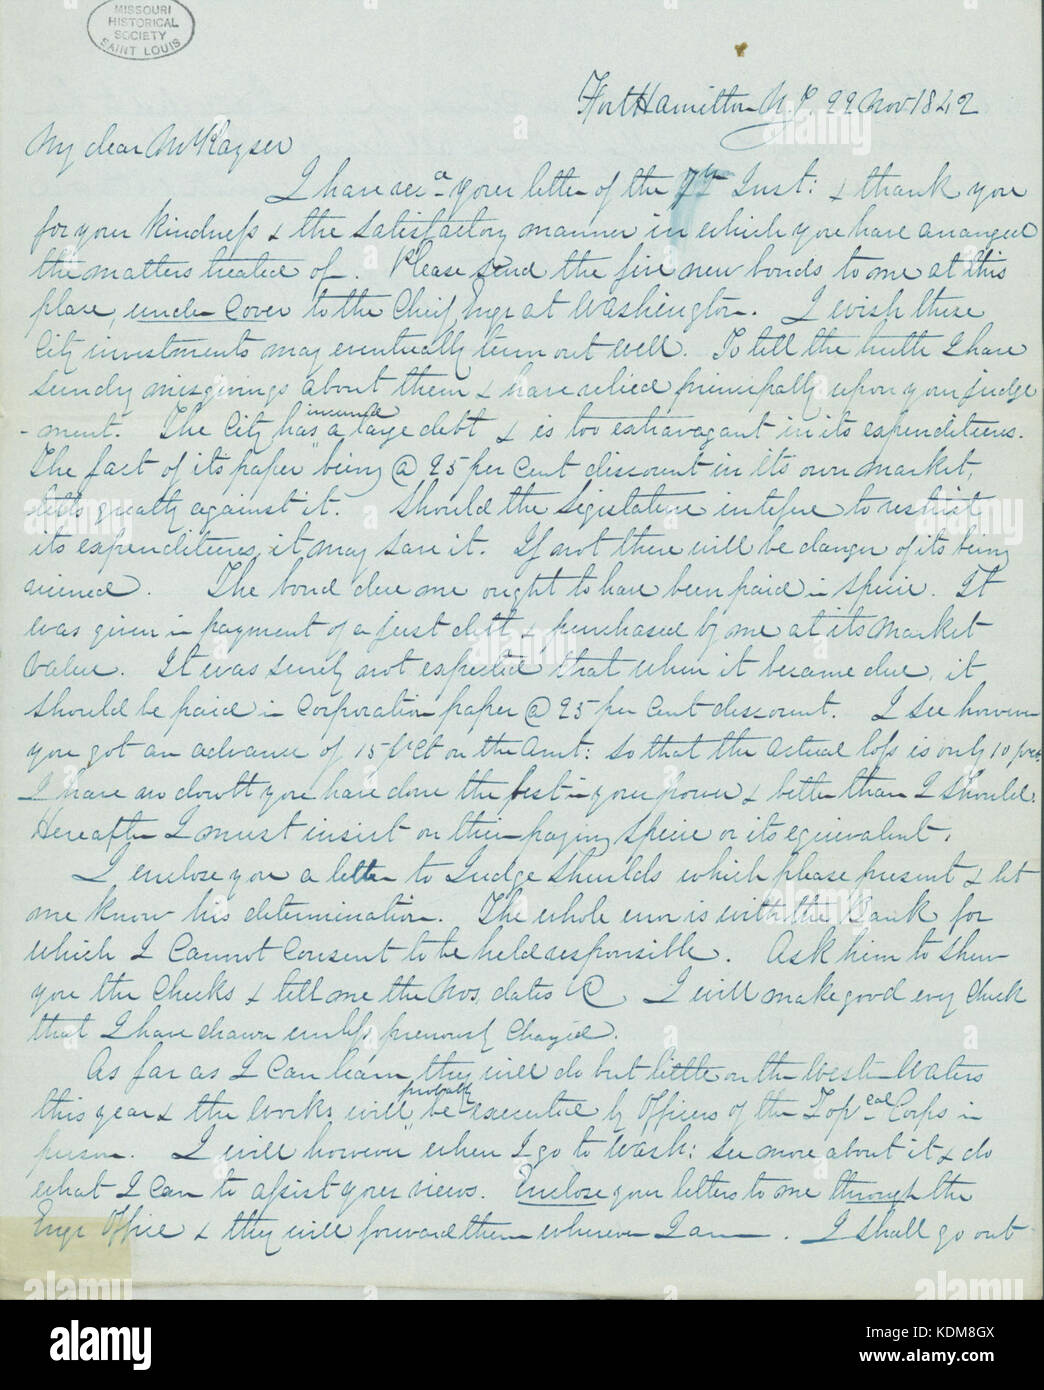 MISSOURI
HISTORICAL
SOCIETY
SAINT LOUIS
Fort Hamilton N.Y. 22 Nov 1842
My dear Mr Kayser
I have recd your letter of the 7th Inst: & thank you
for your kindness & the satisfactory manner in which you have arranged
the matters treated of. Please send the five new bonds to me at this
place, under cover to the Chief Engr at Washington. I wish these
City investments may eventually turn out well. To tell the truth I have
sundry misgivings about them & have relied principally upon your judge
-ment. The City has incurred a large debt & is too extravagant in its expenditures.
The fact of its paper being @ 25 per cent discount in its own market,
tells greatly against it. Should the Legislature interfere to restrict
its expenditures, it may save it. If not there will be danger of its being
ruined. The bond due me ought to have been paid in specie. It
was given in payment of a just debt & purchased by me at its market
value. It was surely not expected that when it became due, it
should be paid in Corporation paper @ 25 per cent discount. I see however
you got an advance of 15 pr ct on the Amt: so that the actual loss is only 10 pr ct.
I have no doubt you have done the best in your power & better than I should.
Hereafter I must insist on their paying specie or its equivalent.
I enclose you a letter to Judge Shields which please present & let
me know his determination. The whole error is with the Bank for
which I cannot consent to be held responsible. Ask him to shew
you the checks & tell me the Nos, dates &c I will make good evey check
that I have drawn unless previously charged.
As far as I can learn they will do but little on the Western Waters
this year & the works will probably be executed by Officers of the Topcal Corps in
person. I will however when I go to Wash: see more about it & do
what I can to assist your views. Enclose your letters to me through the
Engr Office & they will forward them wherever I am. I shall go out
alamy
Image ID: KDM8GX
www.alamy.com